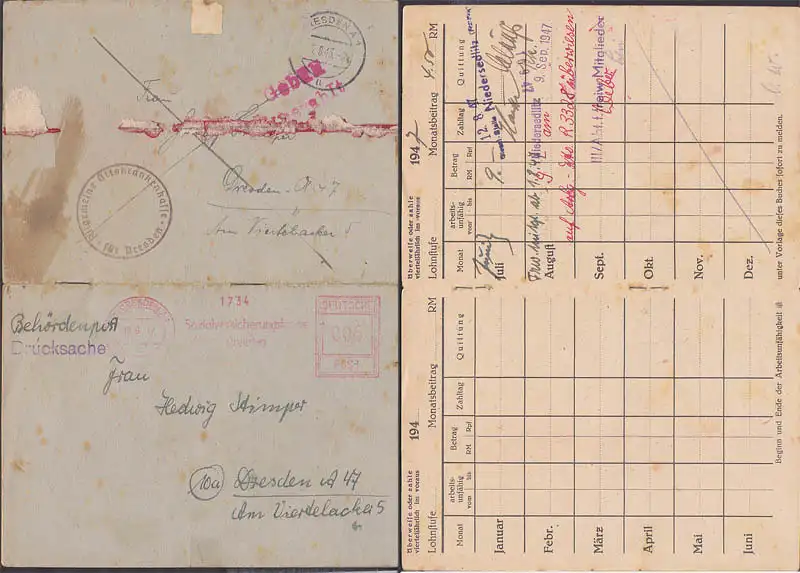 DRESDEN A 1
Gebühr
Frau
Dresden - A 47
Am Viertelacker 5
Allgemeine Ortskrankenkasse
für Dresden
1734
Behördenpost
Drucksache
Sozialversicherungskasse
Dresden
DEUTSCHE
006
Frau
Hedwig Stimper
(10a) Dresden A 47
Am Viertelacker 5
Überweise oder zahle
vierteljährlich im voraus
1947
Lohnstufe
Monatsbeitrag 4.50 RM
Monat
arbeitsunfähig
vom bis
Betrag
RM Rpf
Zahltag
Quittung
Juli
9.-
12. 8. 47
Niedersedlitz
August
Niedersedlitz
9. Sep. 1947
Sept.
III/Abt. f. freiw. Mitglieder
Okt.
Nov.
Dez.
unter Vorlage dieses Buches sofort zu melden.
Überweise oder zahle
vierteljährlich im voraus
194
Lohnstufe
Monatsbeitrag RM
Monat
arbeitsunfähig
vom bis
Betrag
RM Rpf
Zahltag
Quittung
Januar
Febr.
März
April
Mai
Juni
Beginn und Ende der Arbeitsunfähigkeit ist